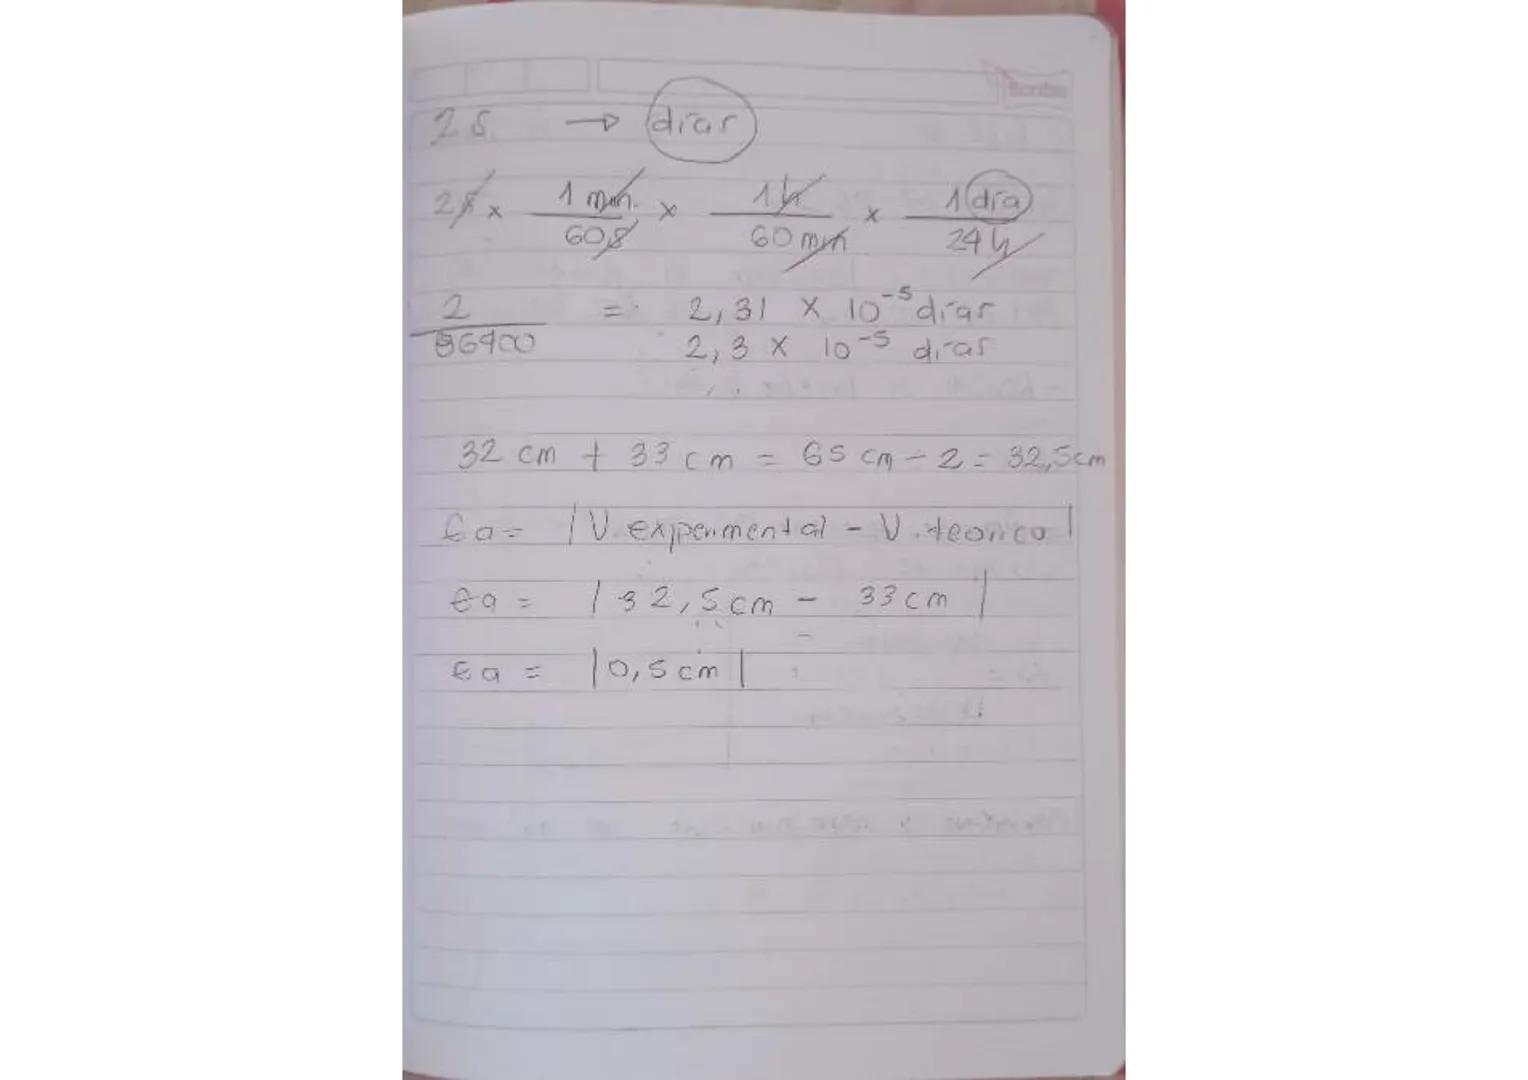 Scribe
2 s. → días
2 s × 1 min. / 60 s × 1 h / 60 min × 1 día / 24 h
2 / 86400 = 2,31 × 10⁻⁵ días
2,3 × 10⁻⁵ días
32 cm + 33 cm = 65 cm - 2 = 32,5 cm
Ea = | V. experimental - V. teorico |
Ea = | 32,5 cm - 33 cm |
Ea = | 0,5 cm |